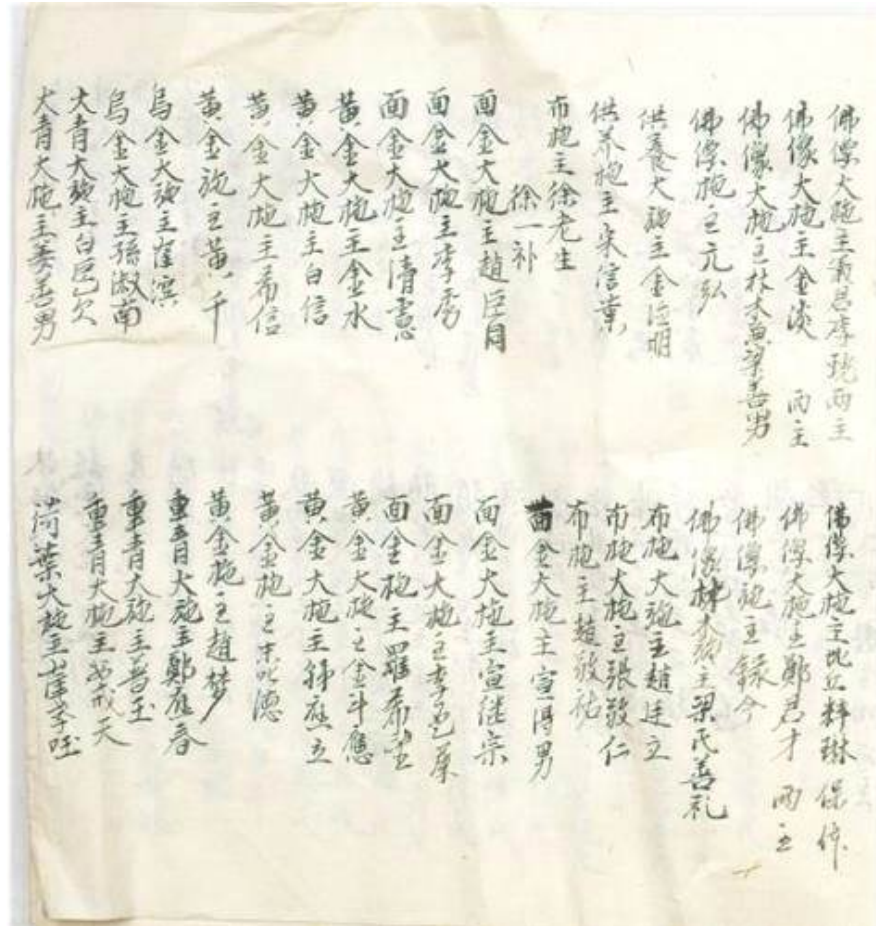 佛像大施主 君李琉兩主
佛像大施主金淡 兩主
佛像大施主林大奐梁善男
佛像施主元弘
供養大施主金 明
供养施主宋信業
布施主徐老生
徐一补
面金大施主趙臣同
面金大施主李秀
面金大施主清憲
黃金大施主金水
黃金大施主白信
黃金大施主希信
黃金施主黃千
烏金大施主崔濱
烏金大施主孫淑南
大青大施主白 欠
大青大施主姜善男
佛像大施主比丘釋琳 保体
佛像大施主鄭君才 兩主
佛像施主録今
佛像 大施主梁氏善礼
布施大施主趙廷立
布施大施主張敬仁
布施主趙敬祐
面金大施主宣得男
面金大施主宣継宗
面金大施主李 
面金施主羅希
黃金大施主金斗應
黃金大施主 應立
黃金施主 德
黃金施主趙梦
重青大施主鄭應春
重青大施主普玉
重青大施主 戒天
荷葉大施主崔李